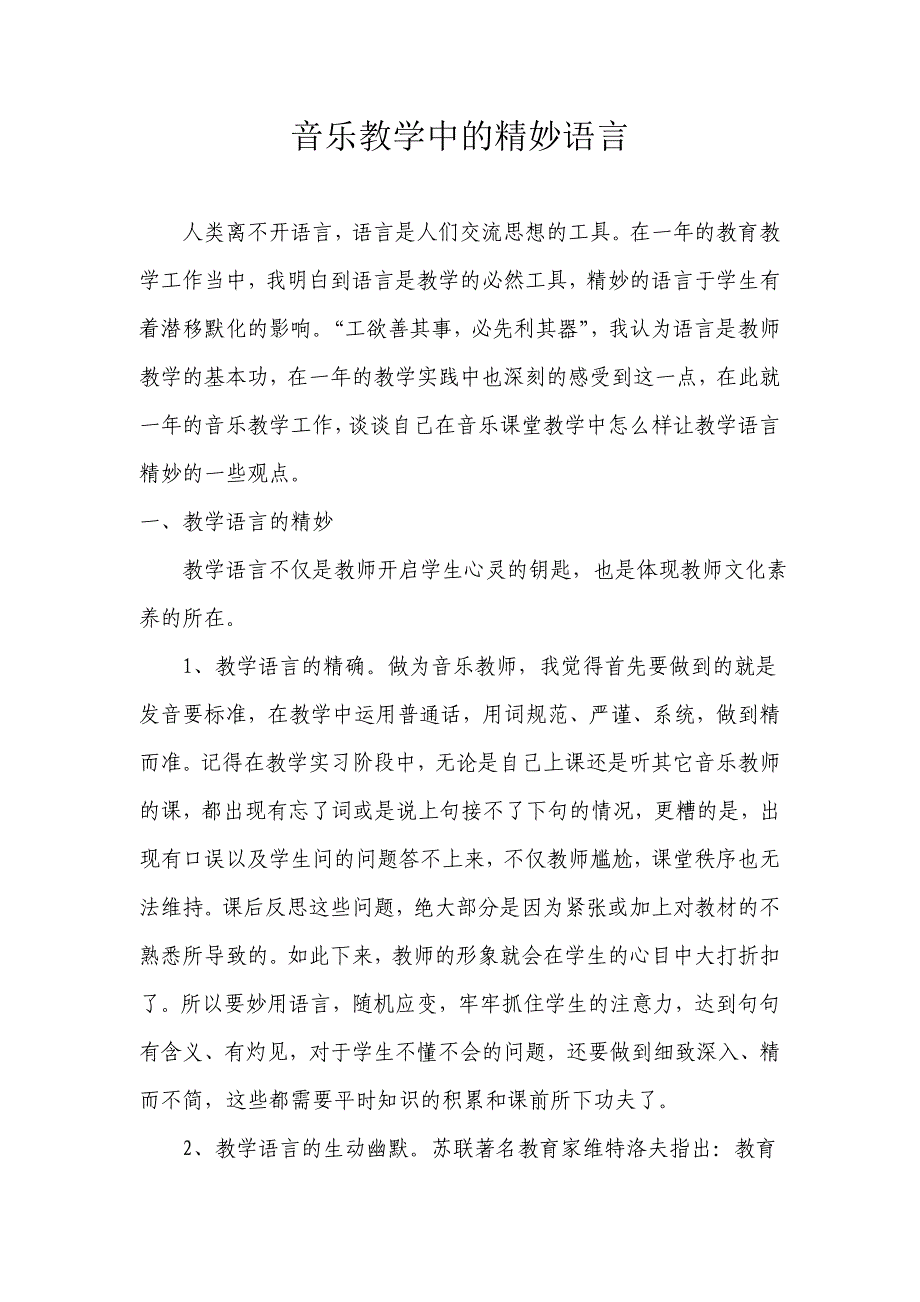 音乐教学中的精妙语言
人类离不开语言，语言是人们交流思想的工具。在一年的教育教
学工作当中，我明白到语言是教学的必然工具，精妙的语言于学生有
着潜移默化的影响。“工欲善其事，必先利其器”，我认为语言是教师
教学的基本功，在一年的教学实践中也深刻的感受到这一点，在此就
一年的音乐教学工作，谈谈自己在音乐课堂教学中怎么样让教学语言
精妙的一些观点。
一、教学语言的精妙
教学语言不仅是教师开启学生心灵的钥匙，也是体现教师文化素
养的所在。
1、教学语言的精确。做为音乐教师，我觉得首先要做到的就是
发音要标准，在教学中运用普通话，用词规范、严谨、系统，做到精
而准。记得在教学实习阶段中，无论是自己上课还是听其它音乐教师
的课，都出现有忘了词或是说上句接不了下句的情况，更糟的是，出
现有口误以及学生问的问题答不上来，不仅教师尴尬，课堂秩序也无
法维持。课后反思这些问题，绝大部分是因为紧张或加上对教材的不
熟悉所导致的。如此下来，教师的形象就会在学生的心目中大打折扣
了。所以要妙用语言，随机应变，牢牢抓住学生的注意力，达到句句
有含义、有灼见，对于学生不懂不会的问题，还要做到细致深入、精
而不简，这些都需要平时知识的积累和课前所下功夫了。
2、教学语言的生动幽默。苏联著名教育家维特洛夫指出：教育